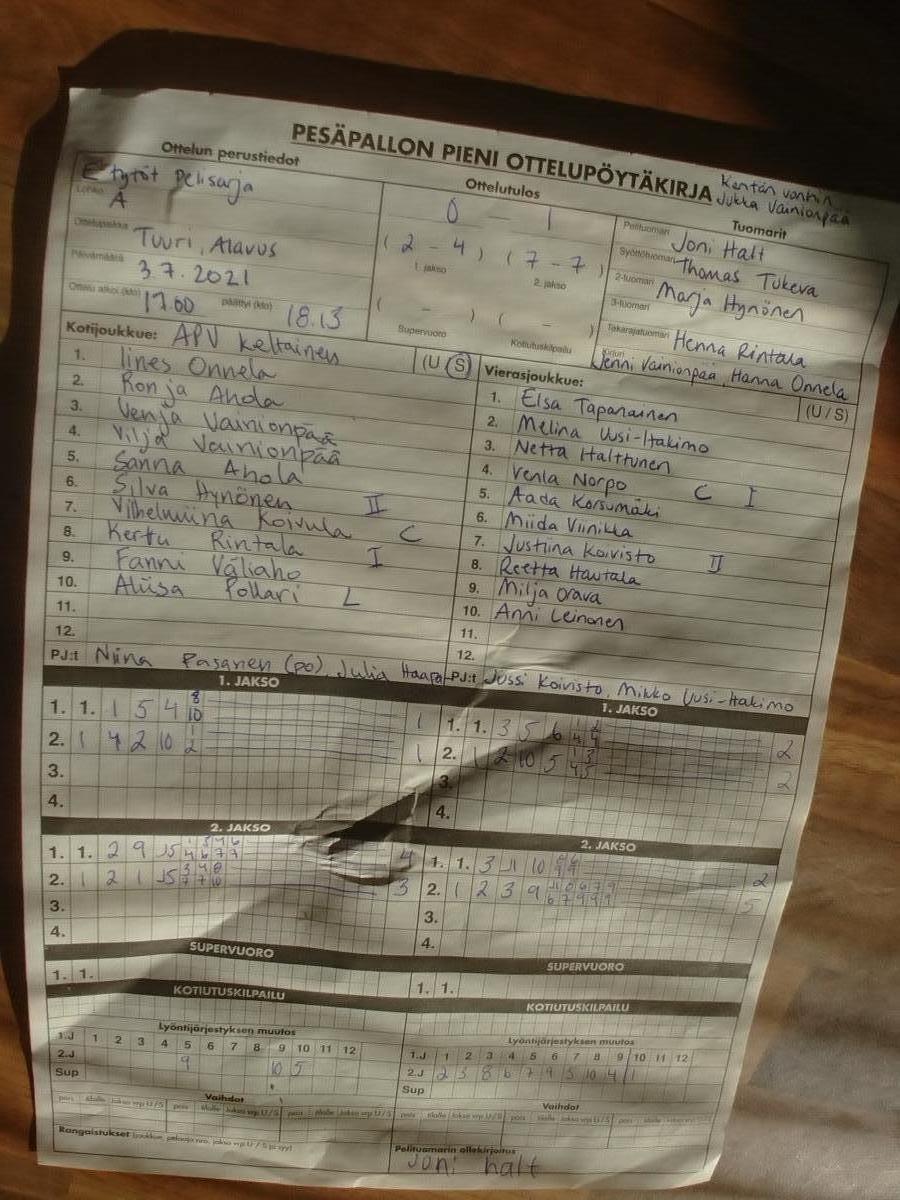 PESÄPALLON PIENI OTTELUPÖYTÄKIRJA
Kentän vanhin
Jukka Vainionpää
Ottelun perustiedot
E tytöt pelisarja
Lohko A
Ottelupaikka Tuuri, Alavus
Päivämäärä 3.7.2021
Ottelu alkoi (klo) 17.00 päättyi (klo) 18.13
Ottelutulos
0 1
( 2 - 4 ) ( 7 - 7 )
1. jakso 2. jakso
( - ) ( - )
Supervuoro Kotiutuskilpailu
Tuomarit
Pelituomari Joni Halt
Syöttötuomari Thomas Tukeva
2-tuomari Marja Hynönen
3-tuomari
Takarajatuomari Henna Rintala
Kirjuri Jenni Vainionpää, Hanna Onnela
Kotijoukkue: APV keltainen (U / S)
1. Iines Onnela
2. Ronja Ahola
3. Venja Vainionpää
4. Vilja Vainionpää
5. Sanna Ahola
6. Silva Hynönen II
7. Vilhelmiina Koivula C
8. Kerttu Rintala I
9. Fanni Väliaho
10. Aliisa Pollari L
11.
12.
PJ:t Niina Pasanen (po), Julia Haapa
Vierasjoukkue: (U / S)
1. Elsa Tapanainen
2. Melina Uusi-Hakimo
3. Netta Halttunen
4. Venla Norpo C I
5. Aada Korsumäki
6. Miida Viinikka
7. Justiina Koivisto II
8. Reetta Hautala
9. Milja Orava
10. Anni Leinonen
11.
12.
PJ:t Jussi Koivisto, Mikko Uusi-Hakimo
1. JAKSO
1. 1. 1 5 4 8 10 1
2. 1 4 2 10 1 2 1
3.
4.
1. JAKSO
1. 1. 3 5 6 2
2. 1 2 10 5 2
3.
4.
2. JAKSO
1. 1. 2 9 4
2. 1 2 1 3
3.
4.
2. JAKSO
1. 1. 3 10 2
2. 1 2 3 9 5
3.
4.
SUPERVUORO
1. 1.
SUPERVUORO
1. 1.
KOTIUTUSKILPAILU
KOTIUTUSKILPAILU
Lyöntijärjestyksen muutos
1.J 1 2 3 4 5 6 7 8 9 10 11 12
2.J 9 10 5
Sup
Lyöntijärjestyksen muutos
1.J 1 2 3 4 5 6 7 8 9 10 11 12
2.J 2 3 8 6 7 9 5 10 4 1
Sup
Vaihdot
pois tilalle Jakso vrp U / S pois tilalle Jakso vrp U / S pois tilalle Jakso vrp U / S
Vaihdot
pois tilalle Jakso vrp U / S pois tilalle Jakso vrp U / S pois tilalle
Rangaistukset (joukkue, pelaaja nro, jakso vrp U / S ja syy)
Pelituomarin allekirjoitus
Joni halt